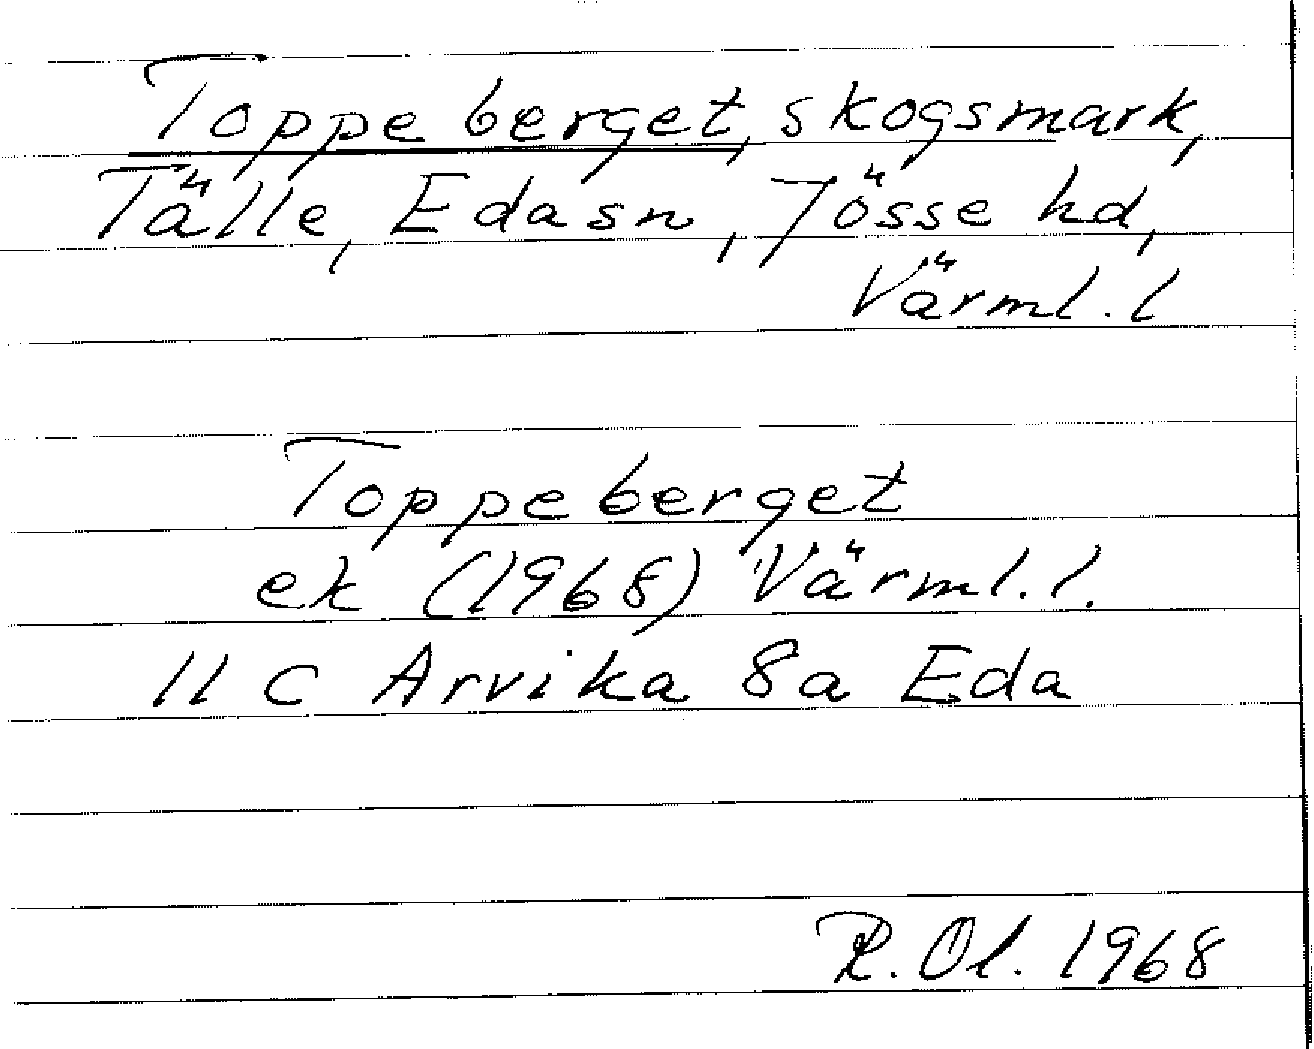 Toppeberget, skogsmark,
Tälle, Eda sn, Jösse hd,
Värml. l
Toppeberget
ek (1968) Värml. l.
11 C Arvika 8a Eda
R. Ol. 1968